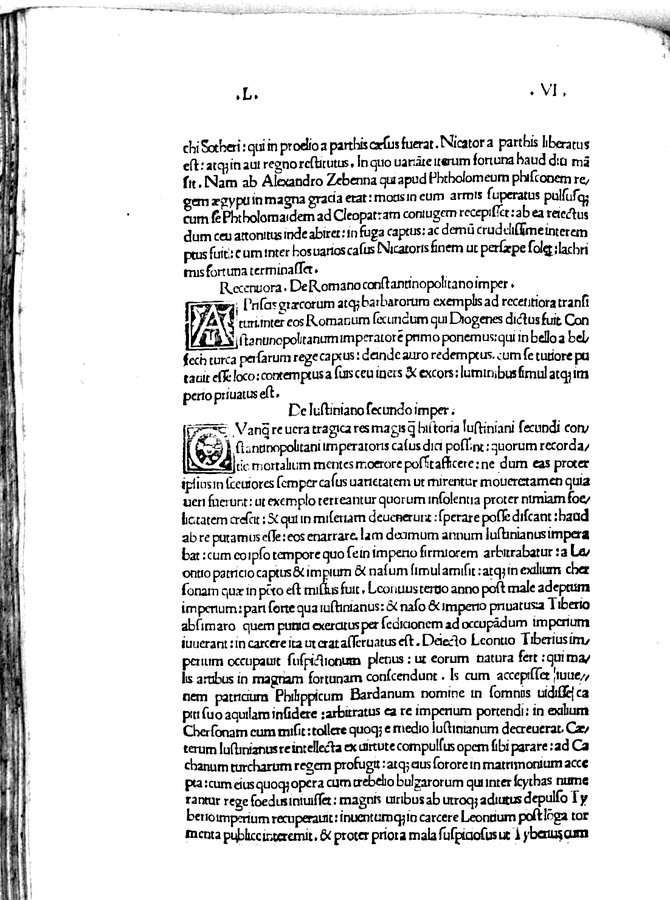 .L. . VI .
chi Sotheri : qui in proelio a parthis cæsus fuerat . Nicator a parthis liberatus
est : atq; in aut regno restitutus . In quo uariāte iterum fortuna haud diu mā
sit . Nam ab Alexandro Zebenna qui apud Phtholomeum phisconem re/
gem ægypti in magna gracia erat : motis in eum armis superatus pulsusq;
cum se Phtholomaidem ad Cleopatram coniugem recepisset : ab ea reiectus
dum ceu attonitus inde abiret : in fuga captus : ac demū crudelissime interem
ptus fuit : cum inter hos uarios casus Nicatoris finem ut persæpe solet lachri
mis fortuna terminasset .
Recentiora . De Romano constantinopolitano imper .
A Priscis græcorum atq; barbarorum exemplis ad recentiora transi
turi . inter eos Romanum secundum qui Diogenes dictus fuit Con
stantinopolitanum imperatorē primo ponemus : qui in bello a bel/
sech turca persarum rege captus : deinde auro redemptus . cum se tutiore pu
tauit esse loco : contemptus a suis ceu iners & excors : luminibus simul atq; im
perio priuatus est .
De Iustiniano secundo imper .
Q Vanq̄ re uera tragica res magis q̄ historia Iustiniani secundi con/
stantinopolitani imperatoris casus dici possint : quorum recorda/
tio mortalium mentes moerore possit afficere : ne dum eas proter
ipsius in secuiores semper casus uarietatem ut mirentur moueret amen quia
ueri fuerunt : ut exemplo terreantur quorum insolentia proter nimiam foe/
licitatem crescit : & qui in miseriam deuenerunt : sperare posse discant : haud
ab re putamus esse : eos enarrare . Iam decimum annum Iustinianus impera
bat : cum eo ipso tempore quo se in imperio firmiorem arbitrabatur : a Le/
ontio patricio captus & impium & nasum simul amisit : atq; in exilium cher
sonam quæ in pōto est missus fuit . Leontius tertio anno post male adeptum
imperium : pari sorte qua iustinianus : & naso & imperio priuatus : a Tiberio
absimaro quem punici exercitus per sedicionem ad occupādum imperium
iuuerant : in carcere ita ut erat asseruatus est . Deiecto Leontio Tiberius im/
perium occupauit suspictionum plenus : ut eorum natura fert : qui ma/
lis artibus in magnam fortunam conscendunt . Is cum accepisset iuue/
nem patricium Philippicum Bardanum nomine in somniis uidisse ca
piti suo aquilam insidere : arbitratus ea re imperium portendi : in exilium
Chersonam eum misit : tollere quoq; e medio Iustinianum decreuerat . Cæ/
terum Iustinianus re intellecta ex uirtute compulsus opem sibi parare : ad Ca
chanum turcharum regem profugit : atq; eius sorore in matrimonium acce
pta : cum eius quoq; opera cum trebelio bulgarorum qui inter scythas nume
rantur rege foedus iniuisset : magnis uiribus ab utroq; adiutus depulso Ty
berio imperium recuperauit : inuentumq; in carcere Leontium post lōga tor
menta publice interemit . & proter priora mala suspiciosus ut Tyberius cum